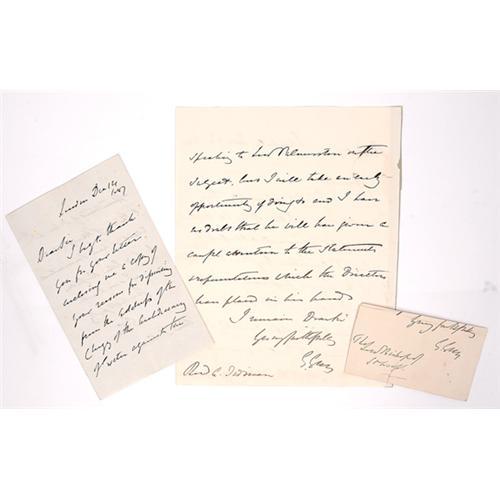 London Dec 14
Dear Sir
I beg to thank
you for your letter
enclosing me a copy of
your reasons for dissenting
from the address of the
Clergy of the Archdeaconry
of against the
speaking to Lord Palmerston on the
subject, but I will take an early
opportunity of doing so and I have
no doubt that he will have given a
careful attention to the Statements
which the Directors
have placed in his hands
I remain Dear Sir
Yours faithfully
G. Grey
Revd
Yours faithfully
G. Grey
The
Lord Bishop of